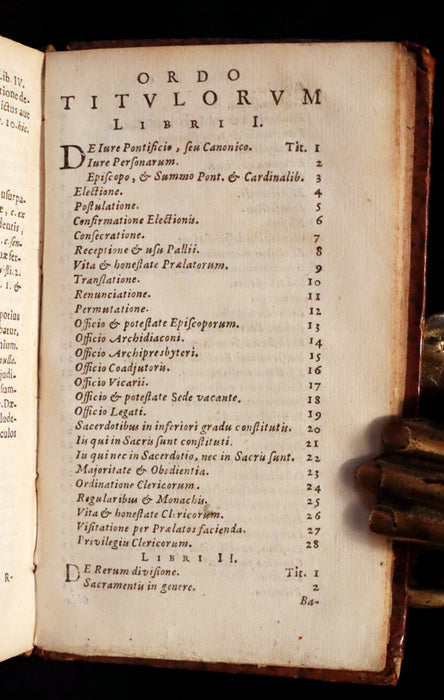 Lib. IV.
ORDO
TITVLORVM
LIBRI I.
DE Iure Pontificio, seu Canonico. Tit. 1
Iure Personarum. 2
Episcopo, & Summo Pont. & Cardinalib. 3
Electione. 4
Postulatione. 5
Confirmatione Electionis. 6
Consecratione. 7
Receptione & usu Pallii. 8
Vita & honestate Prælatorum. 9
Translatione. 10
Renunciatione. 11
Permutatione. 12
Officio & potestate Episcoporum. 13
Officio Archidiaconi. 14
Officio Archipresbyteri. 15
Officio Coadjutoris. 16
Officio Vicarii. 17
Officio & potestate Sede vacante. 18
Officio Legati. 19
Sacerdotibus in inferiori gradu constitutis. 20
Iis qui in Sacris sunt constituti. 21
Iis qui nec in Sacerdotio, nec in Sacris sunt. 22
Majoritate & Obedientia. 23
Ordinatione Clericorum. 24
Regularibus & Monachis. 25
Vita & honestate Clericorum. 26
Visitatione per Prælatos facienda. 27
Privilegiis Clericorum. 28
LIBRI II.
DE Rerum divisione. Tit. 1
Sacramentis in genere. 2
Ba-